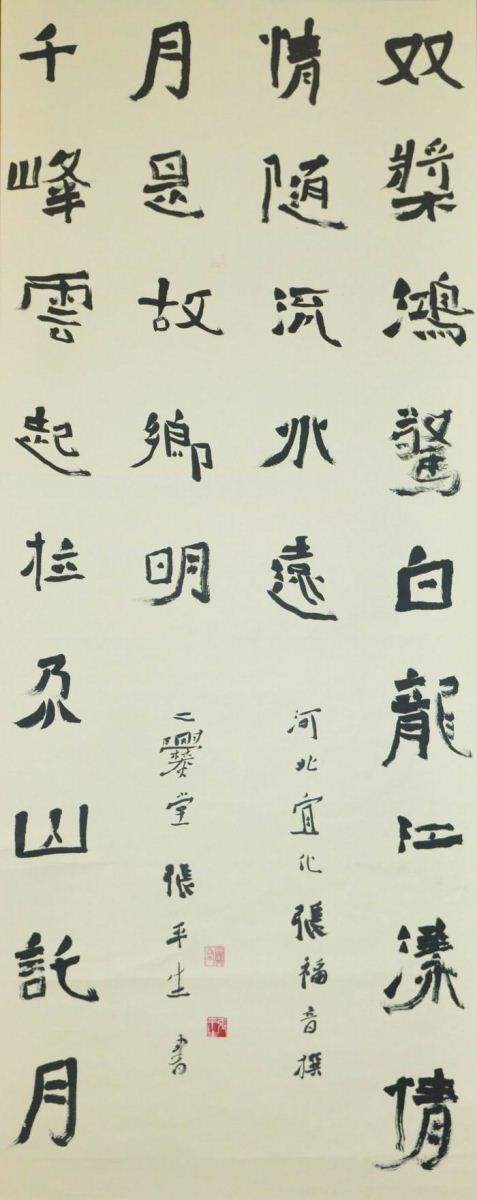 双槳鴻驚白龍江漾情
情随流水遠
河北宣化張福音撰
千峰雲起拉尕山託月
月是故鄉明
二爨堂張平生書